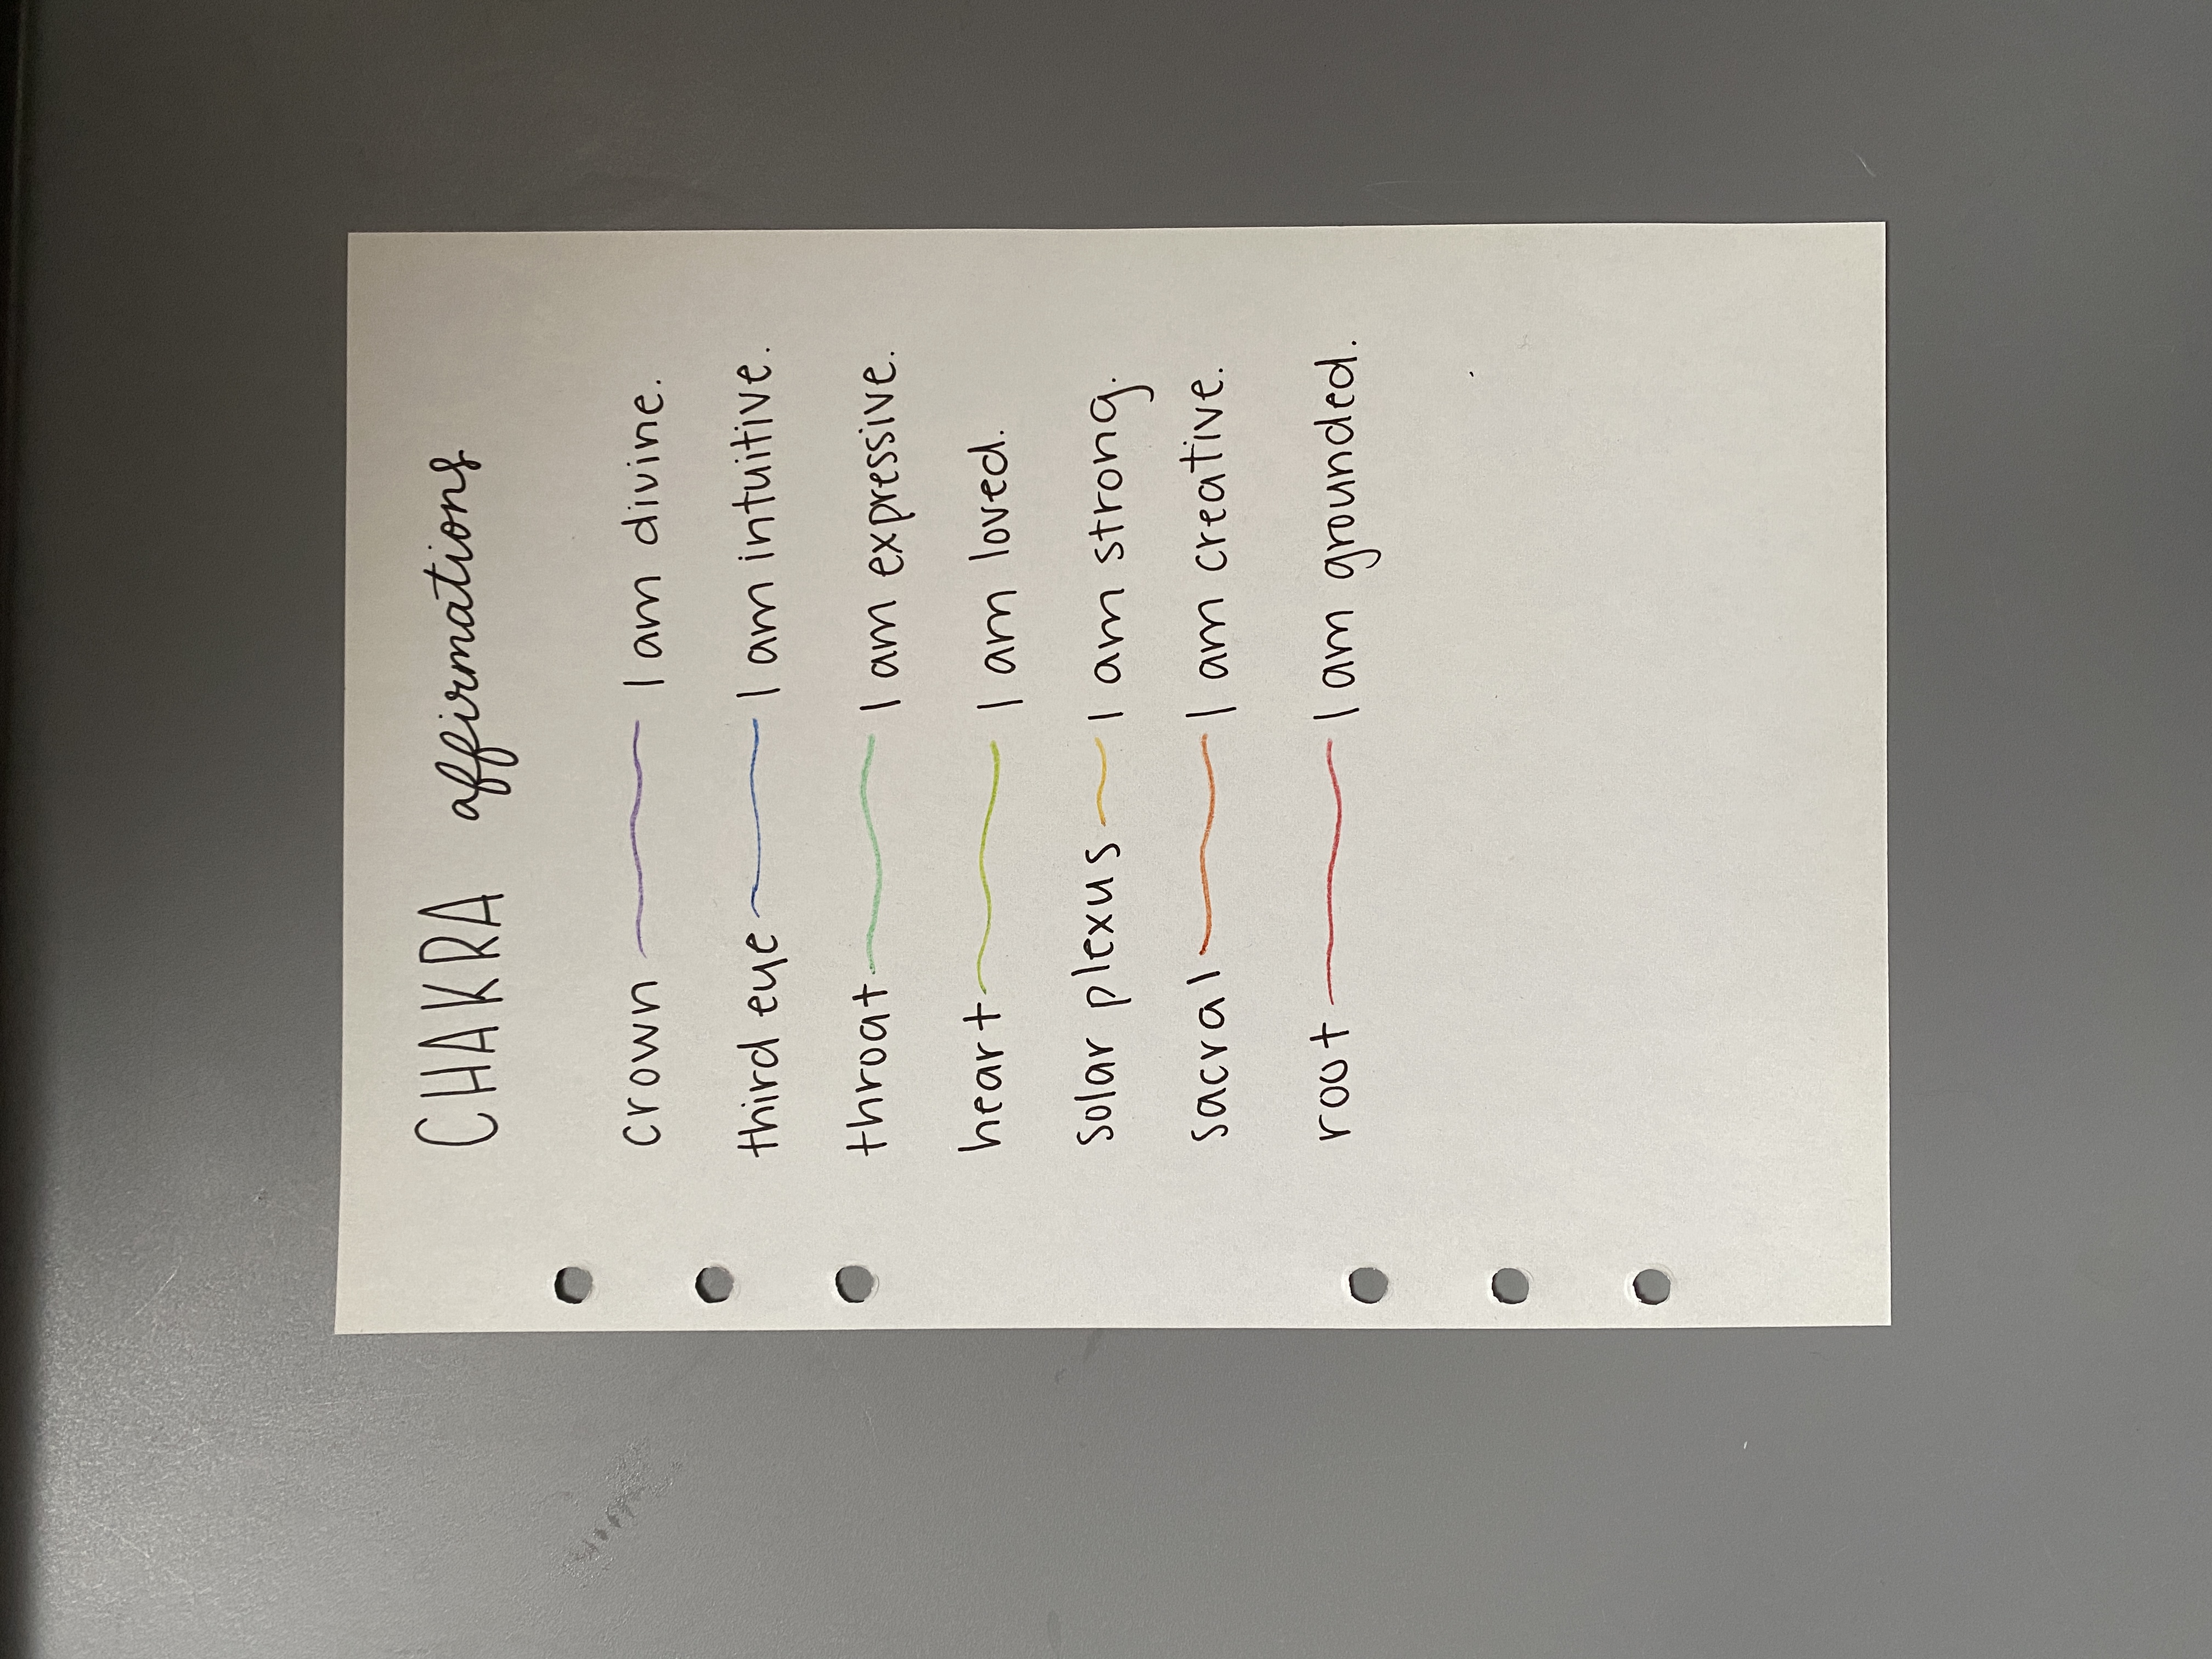 CHAKRA affirmations
crown I am divine.
third eye I am intuitive.
throat I am expressive.
heart I am loved.
solar plexus I am strong.
sacral I am creative.
root I am grounded.